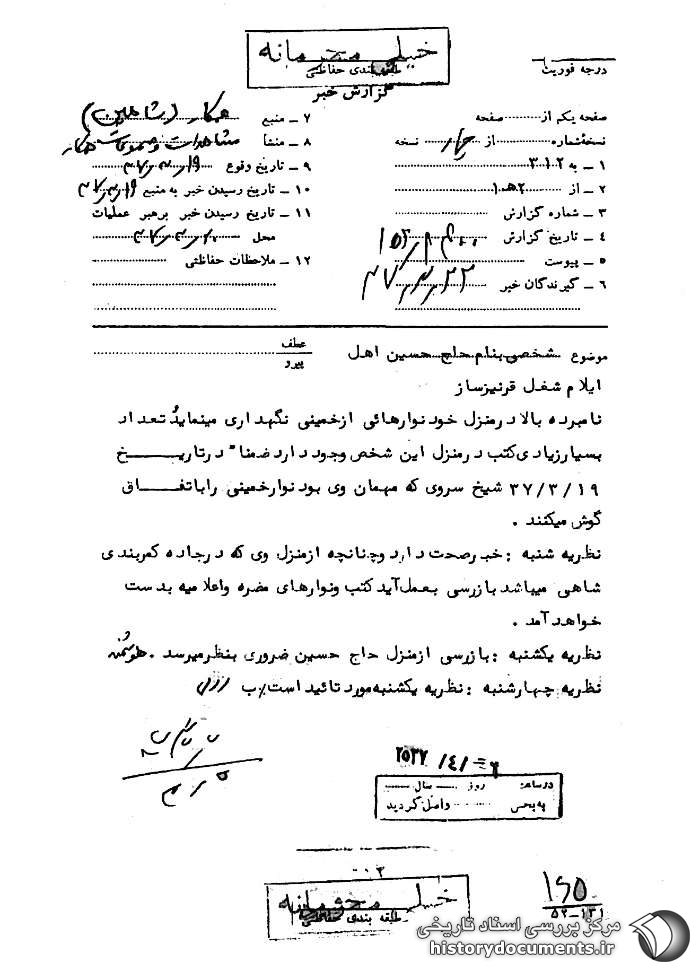 خیلی محرمانه
طبقه بندی حفاظتی
گزارش خبر
درجه فوریت
صفحه یکم از صفحه
نسخهٔ شماره از چهار نسخه
۱ ـ به ۳۱۲
۲ ـ از ۲هـ۱
۳ ـ شماره گزارش
۴ ـ تاریخ گزارش
۵ ـ پیوست
۶ ـ گیرندگان خبر
۷ ـ منبع همکار (شاهین)
۸ ـ منشأ مشاهدات و مسموعات همکار
۹ ـ تاریخ وقوع ۳۷/۳/۱۹
۱۰ ـ تاریخ رسیدن خبر به منبع ۳۷/۳/۱۹
۱۱ ـ تاریخ رسیدن خبر برهبر عملیات
محل ۳۷/۳/۲۰
۱۲ ـ ملاحظات حفاظتی
موضوع شخصی بنام حاج حسین اهل
ایلام شغل قرنیزساز
عطف
پیرو
نامبرده بالا در منزل خود نوارهائی از خمینی نگهداری مینماید تعداد
بسیار زیادی کتب در منزل این شخص وجود دارد ضمناً در تاریخ
۳۷/۳/۱۹ شیخ سروی که مهمان وی بود نوار خمینی را باتفاق
گوش میکنند .
نظریه شنبه : خبر صحت دارد و چنانچه از منزل وی که در جاده کمربندی
شاهی میباشد بازرسی بعمل آید کتب و نوارهای مضره و اعلامیه بدست
خواهد آمد .
نظریه یکشنبه : بازرسی از منزل حاج حسین ضروری بنظر میرسد . هوشمند
نظریه چهارشنبه : نظریه یکشنبه مورد تائید است/ب
۲۵۳۷/۴/
در ساعت روز سال
به بخش واصل گردید
۳ ۰ ۰
خیلی محرمانه
طبقه بندی حفاظتی
۱۶۵
۵۲ــ۱۳۱
مرکز بررسی اسناد تاریخی
historydocuments.ir